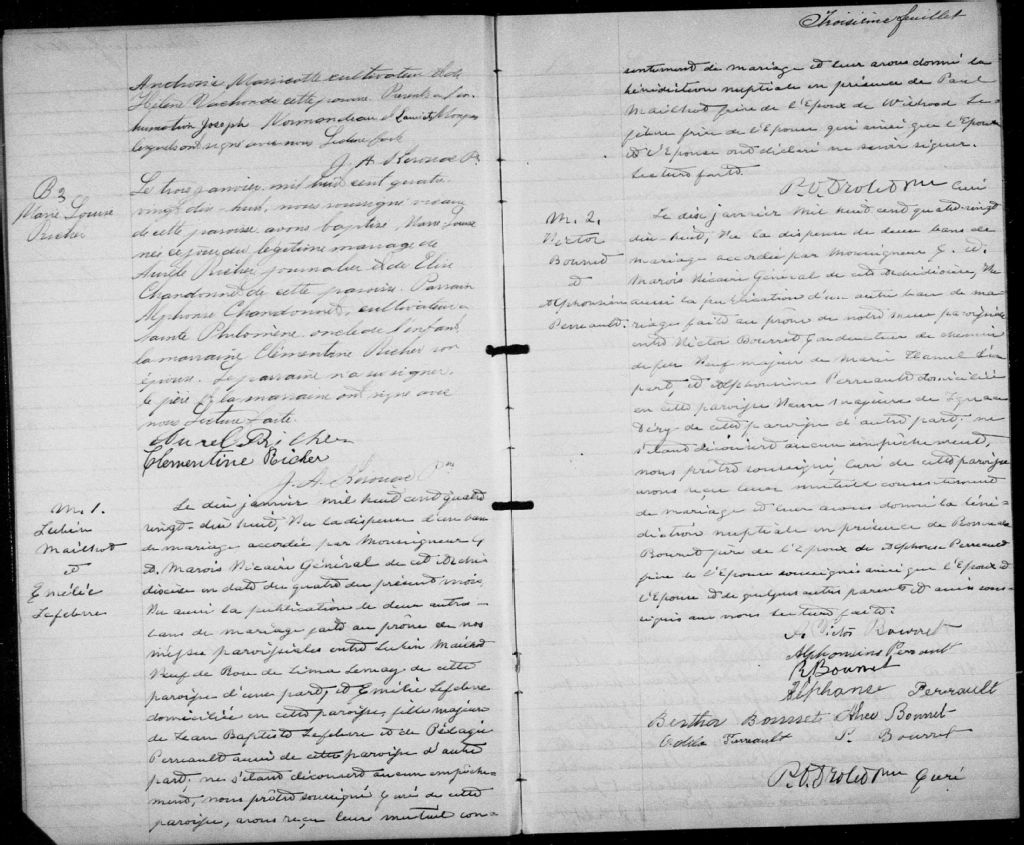 Marcotte cultivateur et de
Hélène Vachon de cette paroisse. Présents à l'in-
humation Joseph Normandeau et
lesquels ont signé avec nous Lecture faite
J. A. Ptre
B 3
Marie Louise
Richer
Le trois janvier mil huit cent quatre
vingt dix-huit, nous soussigné vicaire
de cette paroisse avons baptisé Marie Louise
née ce jour du légitime mariage de
Aurèle Richer journalier et de Elise
Chandonnet de cette paroisse. Parrain
Alphonse Chandonnet, cultivateur à
Sainte Philomène oncle de l'enfant,
la marraine Clémentine Richer son
épouse. Le parrain n'a su signer,
le père et la marraine ont signé avec
nous Lecture faite.
Aurel Richer
Clementine Richer
J. A. Ptre
M. 1.
Lubin
Mailhot
et
Emélie
Lefebvre
Le dix janvier mil huit cent quatre
vingt-dix huit, Vu la dispense d'un ban
de mariage accordée par Monseigneur C.
A. Marois Vicaire Général de cet Archi-
diocèse en date du quatre du présent mois,
Vu aussi la publication de deux autres
bans de mariage faite au prône de nos
messes paroissiales entre Lubin Mailhot
Veuf de Rose de Lima Lemay de cette
paroisse d'une part, et Emélie Lefebvre
domiciliée en cette paroisse, fille majeure
de Jean Baptiste Lefebvre et de Pélagie
Perreault aussi de cette paroisse d'autre
part; ne s'étant découvert aucun empêche-
ment, nous prêtre soussigné Curé de cette
paroisse, avons reçu leur mutuel con-
Troisième feuillet
sentement de mariage et leur avons donné la
bénédiction nuptiale en présence de Paul
Mailhot frère de l'Epoux de Le-
febvre frère de l'Epouse qui ainsi que l'Epoux
et l'Epouse ont déclaré ne savoir signer.
Lecture faite.
P. O. Drolet Ptre Curé
M. 2.
Victor
Bourret
et
Alphonsine
Perreault.
Le dix janvier mil huit cent quatre-vingt
dix-huit, Vu la dispense de deux bans de
mariage accordée par Monseigneur C. A.
Marois Vicaire Général de cet Archidiocèse, Vu
aussi la publication d'un autre ban de ma-
riage faite au prône de notre messe paroissiale
entre Victor Bourret Conducteur de chemin
de fer Veuf majeur de Marie Hamel d'une
part, et Alphonsine Perreault domiciliée
en cette paroisse Veuve majeure de
Déry de cette paroisse d'autre part; ne
s'étant découvert aucun empêchement,
nous prêtre soussigné, Curé de cette paroisse
avons reçu leur mutuel consentement
de mariage et leur avons donné la béné-
diction nuptiale en présence de
Bourret père de l'Epoux de Alphonse Perreault
frère de l'Epouse soussignés ainsi que l'Epoux et
l'Epouse et de quelques autres parents et amis sous-
signés avec nous lecture faite.
A. Victor Bourret
Alphonsine Perrault
R. Bourret
Alphonse Perrault
Bertha Bourret Bourret
Odila Perrault P. Bourret
P. O. Drolet Ptre Curé